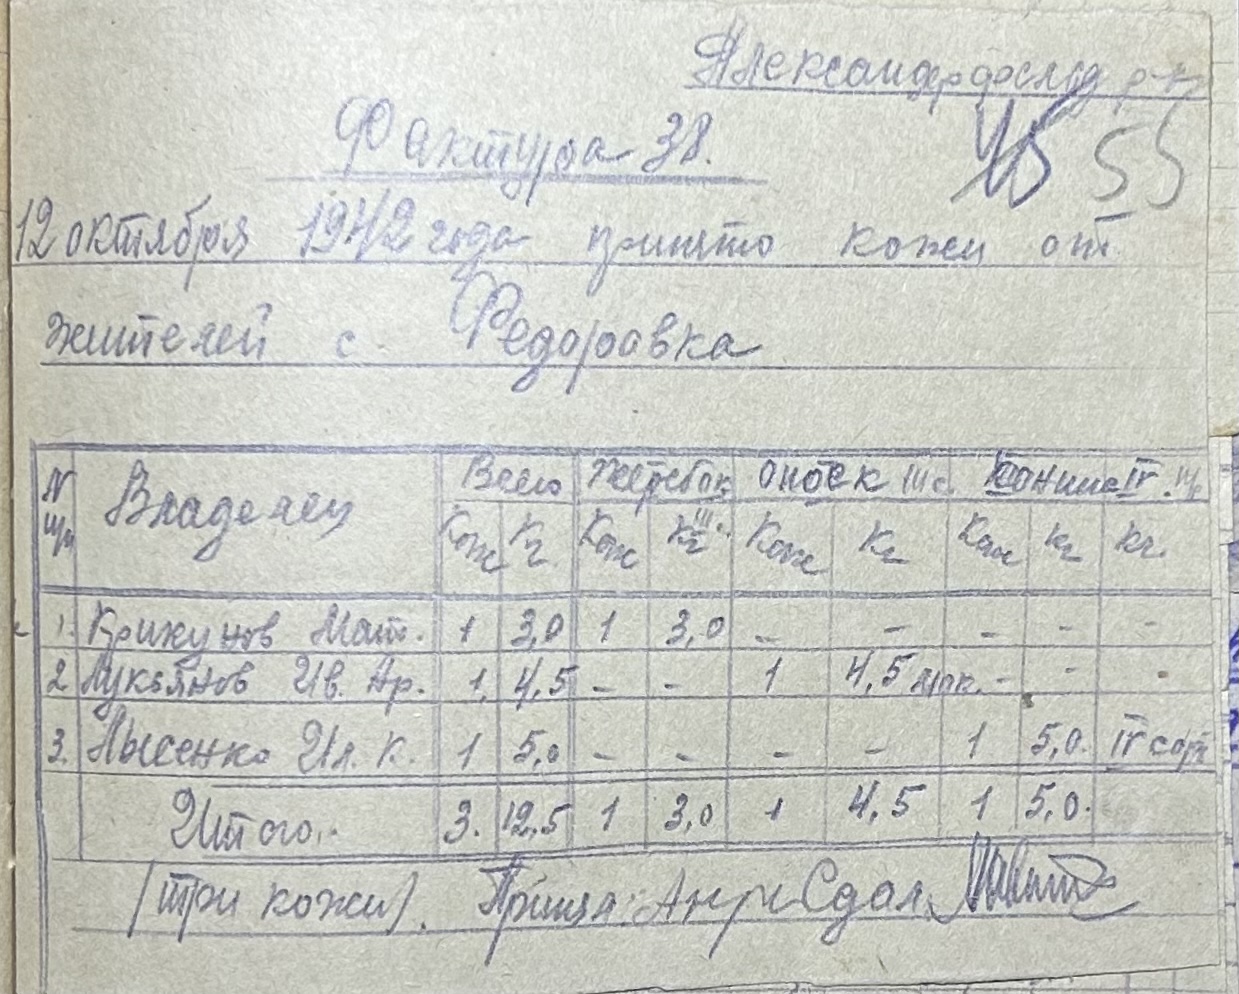 Александерфельд р-н
Фактура 38.
55
12 октября 1942 года принято кожи от
жителей с. Федоровка
N Владелец Всего Жеребок Опоек III с. Конина IV
Кож Кг Кож Кг III с. Кож Кг Кож Кг Кг.
1. Крижунов Мат. 1 3,0 1 3,0 – – – – –
2 Лукьянов Ив. Ар. 1, 4,5 – – 1 4,5 – – –
3. Лысенко Ил. К. 1 5,0 – – – – 1 5,0. IV сорт
Итого. 3. 12,5 1 3,0 1 4,5 1 5,0.
(три кожи). Принял: Сдал